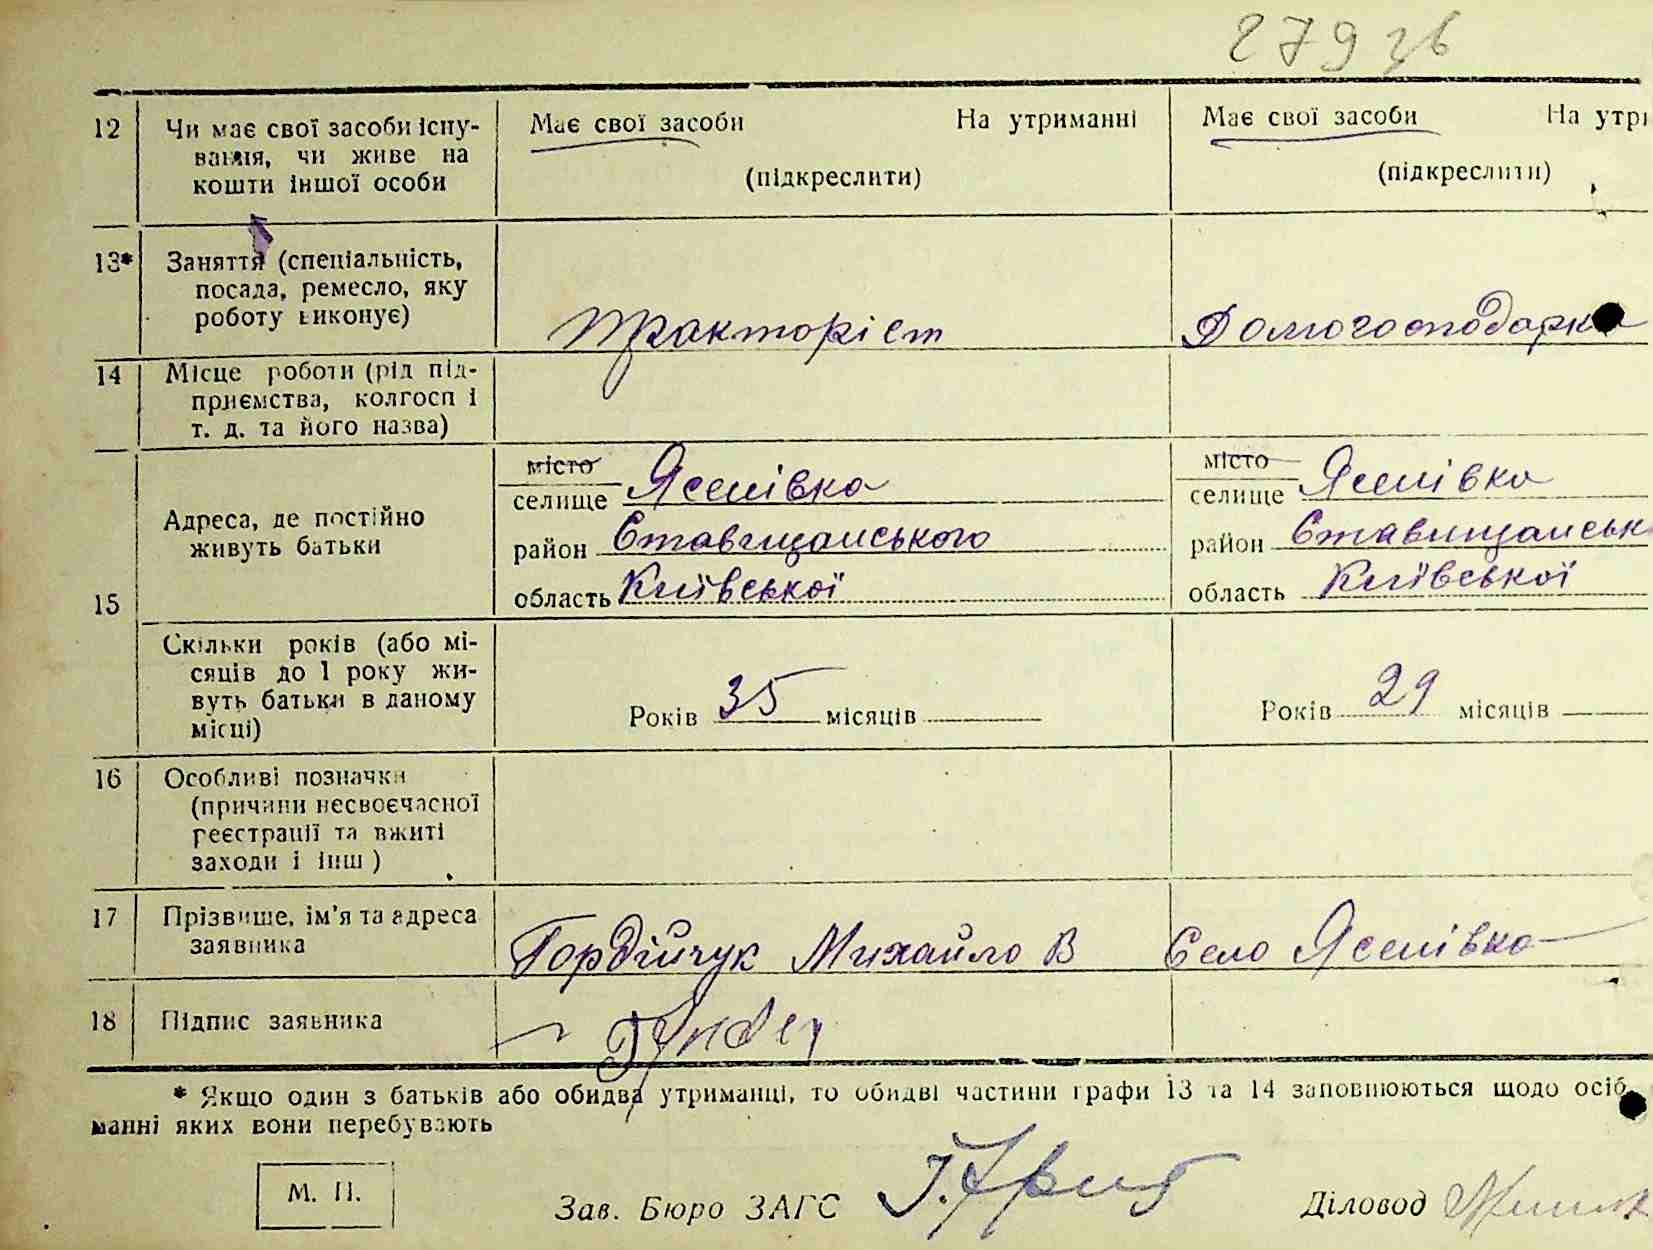 279 зв
12 Чи має свої засоби існу- Має свої засоби На утриманні Має свої засоби На утри
вання, чи живе на (підкреслити) (підкреслити)
кошти іншої особи
13* Заняття (спеціальність,
посада, ремесло, яку
роботу виконує) тракторіст Домогосподарка
14 Місце роботи (рід під-
приємства, колгосп і
т. д. та його назва)
15 Адреса, де постійно
живуть батьки
місто місто
селище Яселівка селище Яселівка
район Ставищанського район Ставищанськ
область Київської область Київської
Скільки років (або мі-
сяців до 1 року жи-
вуть батьки в даному
місці) Років 35 місяців Років 29 місяців
16 Особливі позначки
(причини несвоєчасної
реєстрації та вжиті
заходи і інш )
17 Прізвище, ім'я та адреса
заявника Гордійчук Михайло В Село Яселівка
18 Підпис заявника
* Якщо один з батьків або обидва утриманці, то обидві частини графи 13 та 14 заповнюються щодо осіб,
манні яких вони перебувають
М. П.
Зав. Бюро ЗАГС Діловод